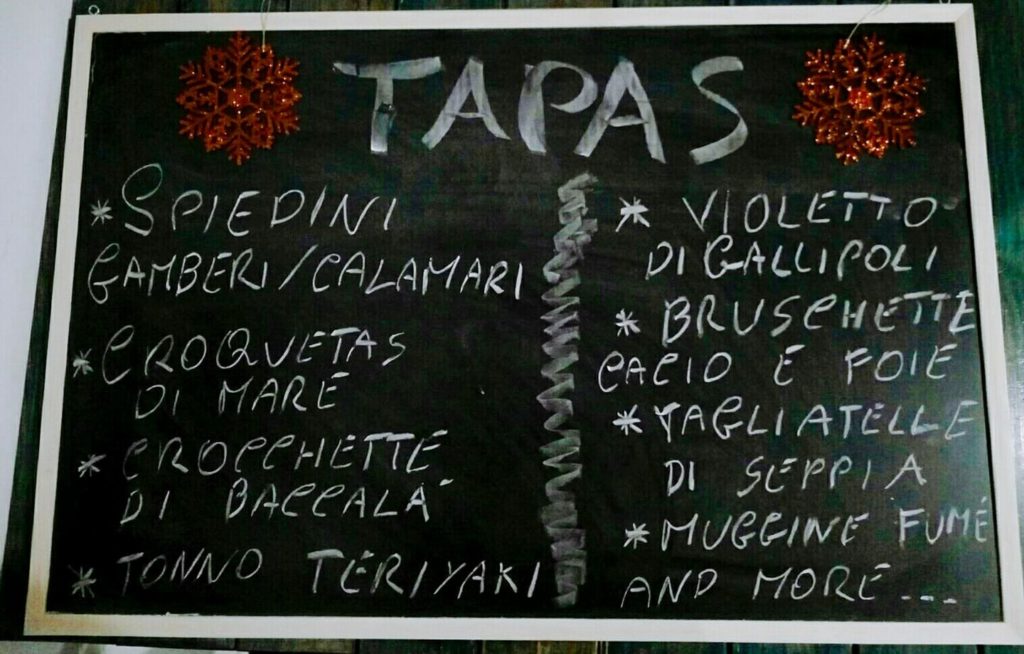 TAPAS
* SPIEDINI
GAMBERI/CALAMARI
* CROQUETAS
DI MARE
* CROCCHETTE
DI BACCALA'
* TONNO TERIYAKI
* VIOLETTO
DI GALLIPOLI
* BRUSCHETTE
CACIO E FOIE
* TAGLIATELLE
DI SEPPIA
* MUGGINE FUMÉ
AND MORE ...